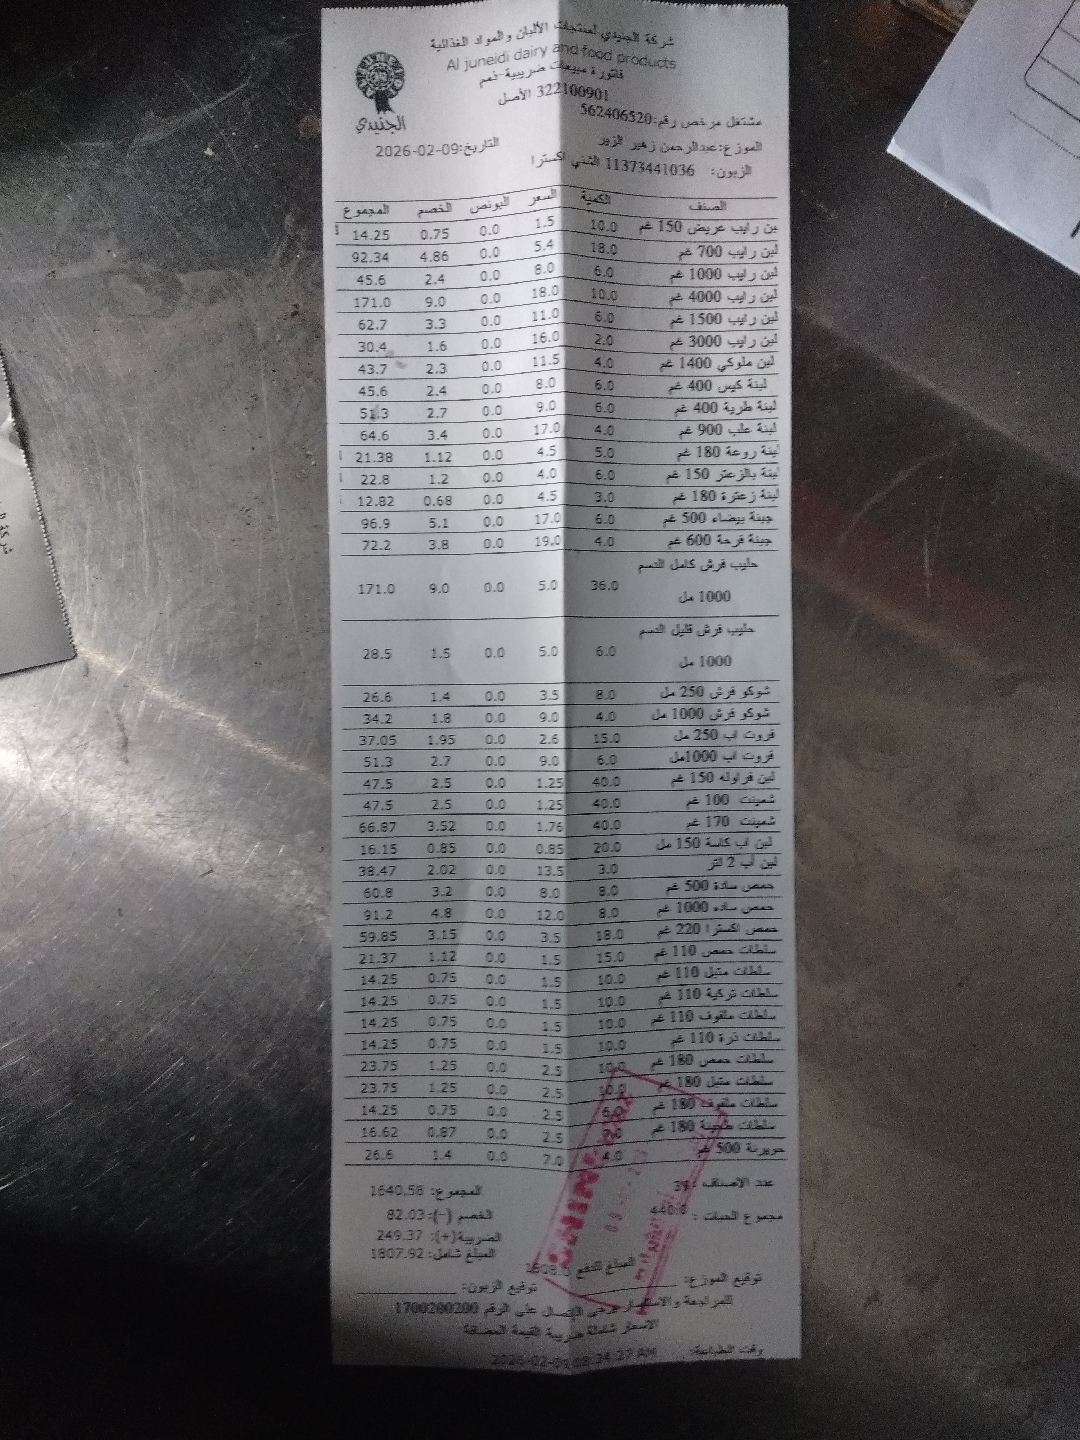 شركة الجنيدي لمنتجات الألبان والمواد الغذائية
Al juneidi dairy and food products
فاتورة مبيعات ضريبية-ذمم
322100901 الأصل
الجنيدي
مشتغل مرخص رقم:562406520
الموزع:عبدالرحمن زهير الزير التاريخ:2026-02-09
الزبون: 11373441036 الشني اكسترا
الصنف الكمية السعر البونص الخصم المجموع
بن رايب عريض 150 غم 10.0 1.5 0.0 0.75 14.25
لبن رايب 700 غم 18.0 5.4 0.0 4.86 92.34
لبن رايب 1000 غم 6.0 8.0 0.0 2.4 45.6
لبن رايب 4000 غم 10.0 18.0 0.0 9.0 171.0
لبن رايب 1500 غم 6.0 11.0 0.0 3.3 62.7
لبن رايب 3000 غم 2.0 16.0 0.0 1.6 30.4
لبن ملوكي 1400 غم 4.0 11.5 0.0 2.3 43.7
لبنة كيس 400 غم 6.0 8.0 0.0 2.4 45.6
لبنة طرية 400 غم 6.0 9.0 0.0 2.7 51.3
لبنة علب 900 غم 4.0 17.0 0.0 3.4 64.6
لبنة روعة 180 غم 5.0 4.5 0.0 1.12 21.38
لبنة بالزعتر 150 غم 6.0 4.0 0.0 1.2 22.8
لبنة زعترة 180 غم 3.0 4.5 0.0 0.68 12.82
جبنة بيضاء 500 غم 6.0 17.0 0.0 5.1 96.9
جبنة فرحة 600 غم 4.0 19.0 0.0 3.8 72.2
حليب فرش كامل الدسم
1000 مل 36.0 5.0 0.0 9.0 171.0
حليب فرش قليل الدسم
1000 مل 6.0 5.0 0.0 1.5 28.5
شوكو فرش 250 مل 8.0 3.5 0.0 1.4 26.6
شوكو فرش 1000 مل 4.0 9.0 0.0 1.8 34.2
فروت اب 250 مل 15.0 2.6 0.0 1.95 37.05
فروت اب 1000مل 6.0 9.0 0.0 2.7 51.3
لبن فراوله 150 غم 40.0 1.25 0.0 2.5 47.5
شمينت 100 غم 40.0 1.25 0.0 2.5 47.5
شمينت 170 غم 40.0 1.76 0.0 3.52 66.87
لبن اب كاسة 150 مل 20.0 0.85 0.0 0.85 16.15
لبن أب 2 لتر 3.0 13.5 0.0 2.02 38.47
حمص سادة 500 غم 8.0 8.0 0.0 3.2 60.8
حمص ساده 1000 غم 8.0 12.0 0.0 4.8 91.2
حمص اكسترا 220 غم 18.0 3.5 0.0 3.15 59.85
سلطات حمص 110 غم 15.0 1.5 0.0 1.12 21.37
سلطات متبل 110 غم 10.0 1.5 0.0 0.75 14.25
سلطات تركية 110 غم 10.0 1.5 0.0 0.75 14.25
سلطات ملفوف 110 غم 10.0 1.5 0.0 0.75 14.25
سلطات ذرة 110 غم 10.0 1.5 0.0 0.75 14.25
سلطات حمص 180 غم 10.0 2.5 0.0 1.25 23.75
سلطات متبل 180 غم 10.0 2.5 0.0 1.25 23.75
سلطات ملفوف 180 غم 2.5 0.0 0.75 14.25
سلطات طحينة 180 غم 2.5 0.0 0.87 16.62
500 غم 4.0 7.0 0.0 1.4 26.6
عدد الاصناف :39 المجموع: 1640.58
مجموع الحبات : الخصم (-): 82.03
الضريبة(+): 249.37
المبلغ شامل: 1807.92
المبلغ للدفع
توقيع الموزع: توقيع الزبون:
للمراجعة والاستفسار يرجى الإتصال على الرقم 1700200200
الاسعار شاملة ضريبة القيمة المضافة
وقت الطباعة: